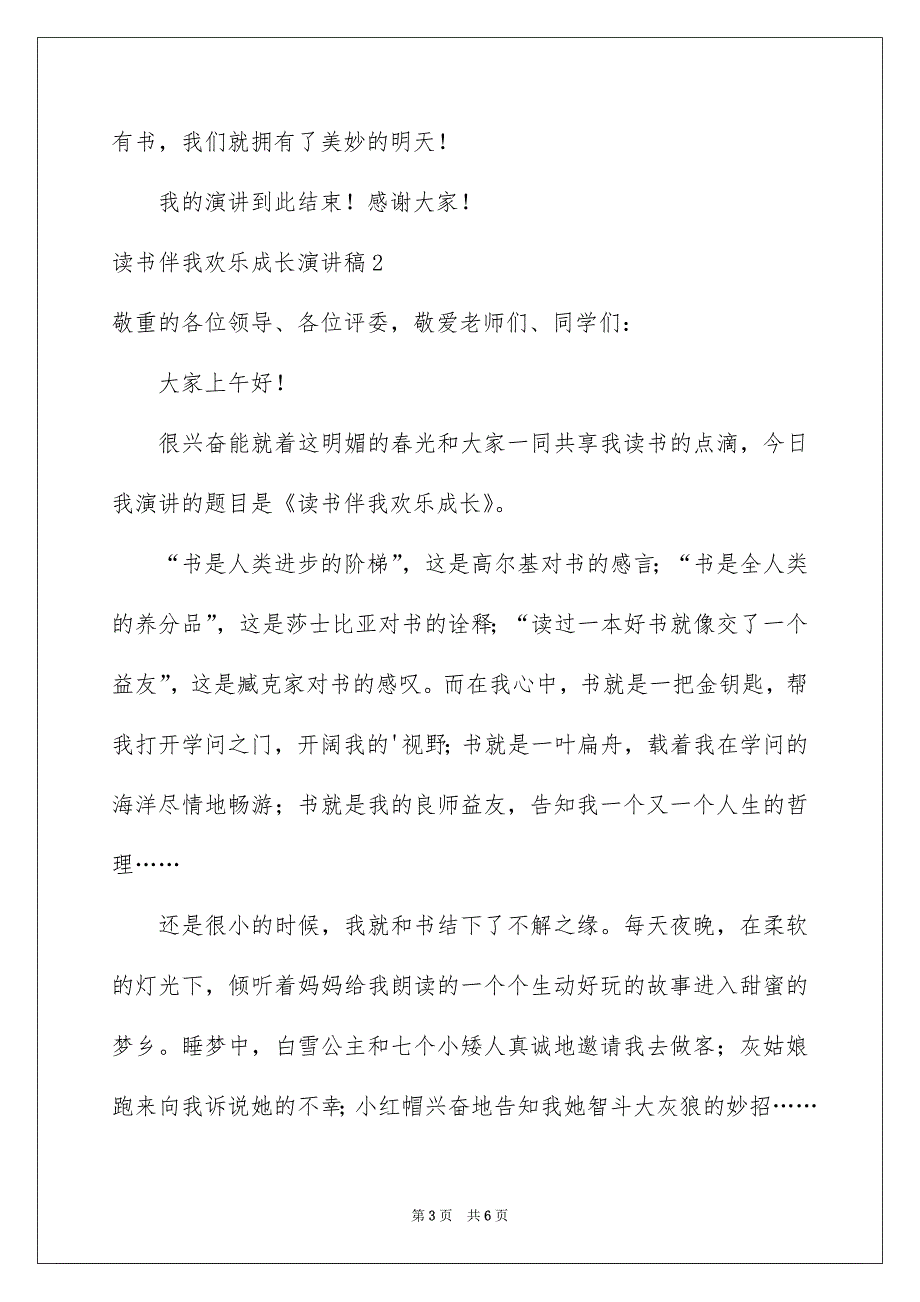 有书，我们就拥有了美妙的明天！
我的演讲到此结束！感谢大家！
读书伴我欢乐成长演讲稿2
敬重的各位领导、各位评委，敬爱老师们、同学们：
大家上午好！
很兴奋能就着这明媚的春光和大家一同共享我读书的点滴，今日
我演讲的题目是《读书伴我欢乐成长》。
“书是人类进步的阶梯”，这是高尔基对书的感言；“书是全人类
的养分品”，这是莎士比亚对书的诠释；“读过一本好书就像交了一个
益友”，这是臧克家对书的感叹。而在我心中，书就是一把金钥匙，帮
我打开学问之门，开阔我的'视野；书就是一叶扁舟，载着我在学问的
海洋尽情地畅游；书就是我的良师益友，告知我一个又一个人生的哲
理……
还是很小的时候，我就和书结下了不解之缘。每天夜晚，在柔软
的灯光下，倾听着妈妈给我朗读的一个个生动好玩的故事进入甜蜜的
梦乡。睡梦中，白雪公主和七个小矮人真诚地邀请我去做客；灰姑娘
跑来向我诉说她的不幸；小红帽兴奋地告知我她智斗大灰狼的妙招……
第3页 共6页